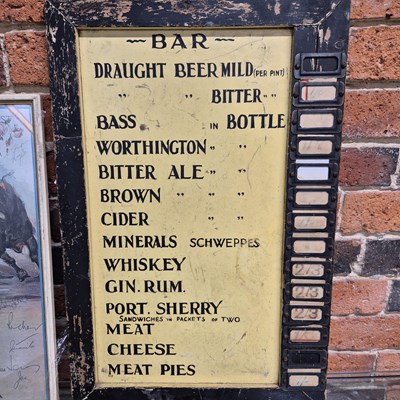 ~ BAR ~
DRAUGHT BEER MILD (PER PINT)
" " BITTER " "
BASS IN BOTTLE
WORTHINGTON " "
BITTER ALE " "
BROWN " " "
CIDER " "
MINERALS SCHWEPPES
WHISKEY
GIN. RUM.
PORT. SHERRY
SANDWICHES IN PACKETS OF TWO
MEAT
CHEESE
MEAT PIES
2/3
2/3
2/3